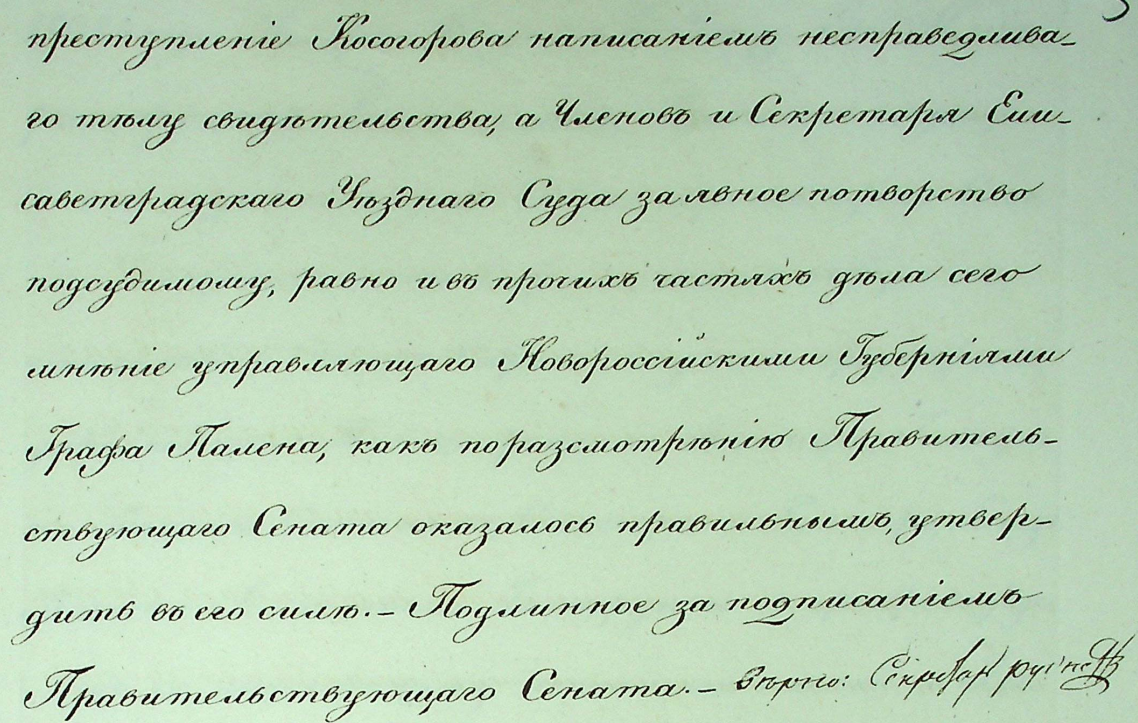 преступленіе Косогорова написаніемъ несправедлива-
го тѣлу свидѣтельства, а Членовъ и Секретаря Ели-
саветградскаго Уѣзднаго Суда за явное потворство
подсудимому, равно и въ прочихъ частяхъ дѣла сего
мнѣніе управляющаго Новороссійскими Губерніями
Графа Палена, какъ по разсмотрѣнію Правитель-
ствующаго Сената оказалось правильнымъ, утвер-
дить въ его силѣ. - Подлинное за подписаніемъ
Правительствующаго Сената. - Вѣрно: Секретарь